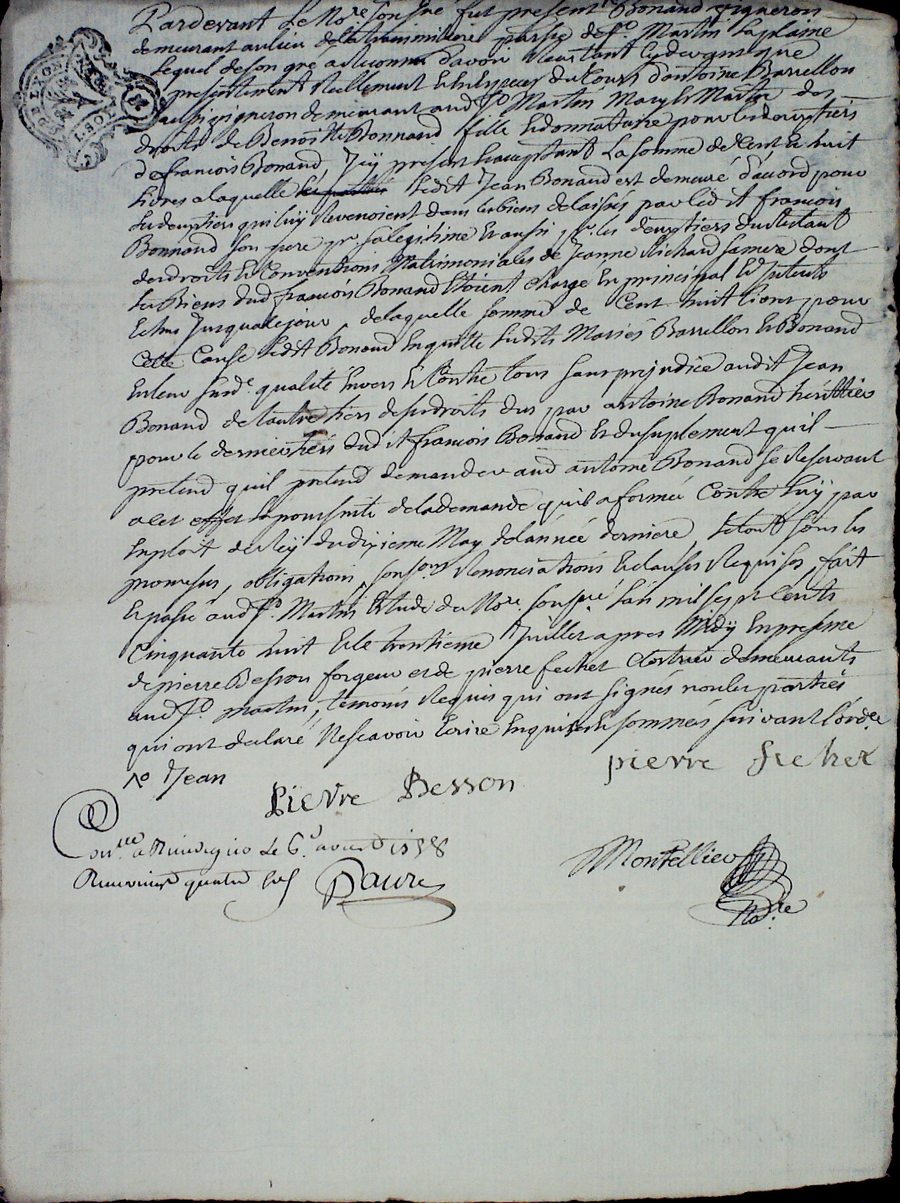 Pardevant le No.re soussné fut présent Bonand vigneron
demeurant au lieu de la parsse de St. Martin la plaine
lequel de son gré a reconnu d'avoir
presentement réellement et en especes du cours d'antoine Barrellon
aussy vigneron demeurant aud. St. Martin Mary et Maitre des
droits de Benoitte Bonnand fille et donnataire pour les deux tiers
d'francois Bonand, Icy present et acceptant la somme de Cent et huit
livres a laquelle ledit Jean Bonand est demeuré d'acord pour
qui luy revenoient dans les biens delaissés par led it francois
Bonnand son pere pr. sa legitime et aussi pr. les deux tiers du restant
des droits et Conventions Matrimoniales de Jeanne Richard sa mere dont
les Biens dud. francois Bonand Etoient chargé en principal et Interets
Jusqua le jour, de laquelle somme de Cent huit livres pour
Cette Cause ledit Bonand En quitte lesdits Mariés Barrellon et Bonand
en leur susd.e qualité Envers et Contre tous sans prejudice audit Jean
Bonand de l'autre tiers desd. droits dus par antoine Bonand heritier
pour le dernier tiers dud it francois Bonand et du suplement qu'il
pretend qu'il pretend demander aud. antoine Bonand se Reservant
a cet effet la poursuite de la demande qu'il a formée Contre luy par
Exploit de du dixieme May de l'année derniere, le tout sous les
promesses, obligations, Renonciations et clauses Requises, fait
et passé aud. St. Martin Etude du No.re soussné. l'an mil sept Cents
Cinquante huit et le trentieme Juillet apres Midy En presence
de pierre Besson forgeur et de pierre fechet demeurants
aud. St. martin, temoins Requis qui ont signés non les parties
qui ont declaré Ne scavoir Ecrire Enquis et sommés suivant l'ord.ce
Jean
Pierre Besson pierre fechet
Con.lle a Rivedegier le 6.e aoust 1758 Montellier
Receu quatre sols Faure No.re